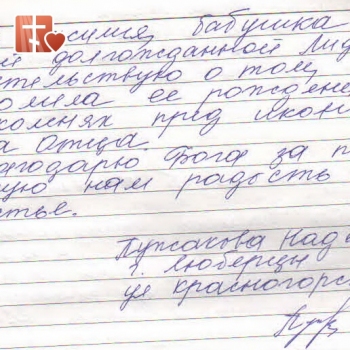 симся, бабушка
й долгожданной Лид
етельствую о том,
омила ее рожден
коленях пред икон
а Отца.
агодарю Бога за п
ную нам радость
стье.
Пупсакова Над
г. Люберцы
ул Красногорс